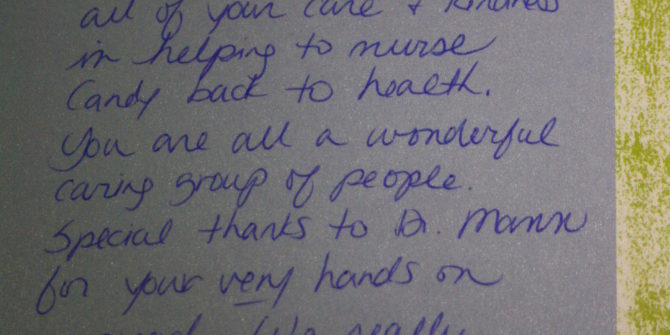 all of your care + kindness
in helping to nurse
Candy back to health.
You are all a wonderful
caring group of people.
Special thanks to Dr. Mann
for your very hands on
We really